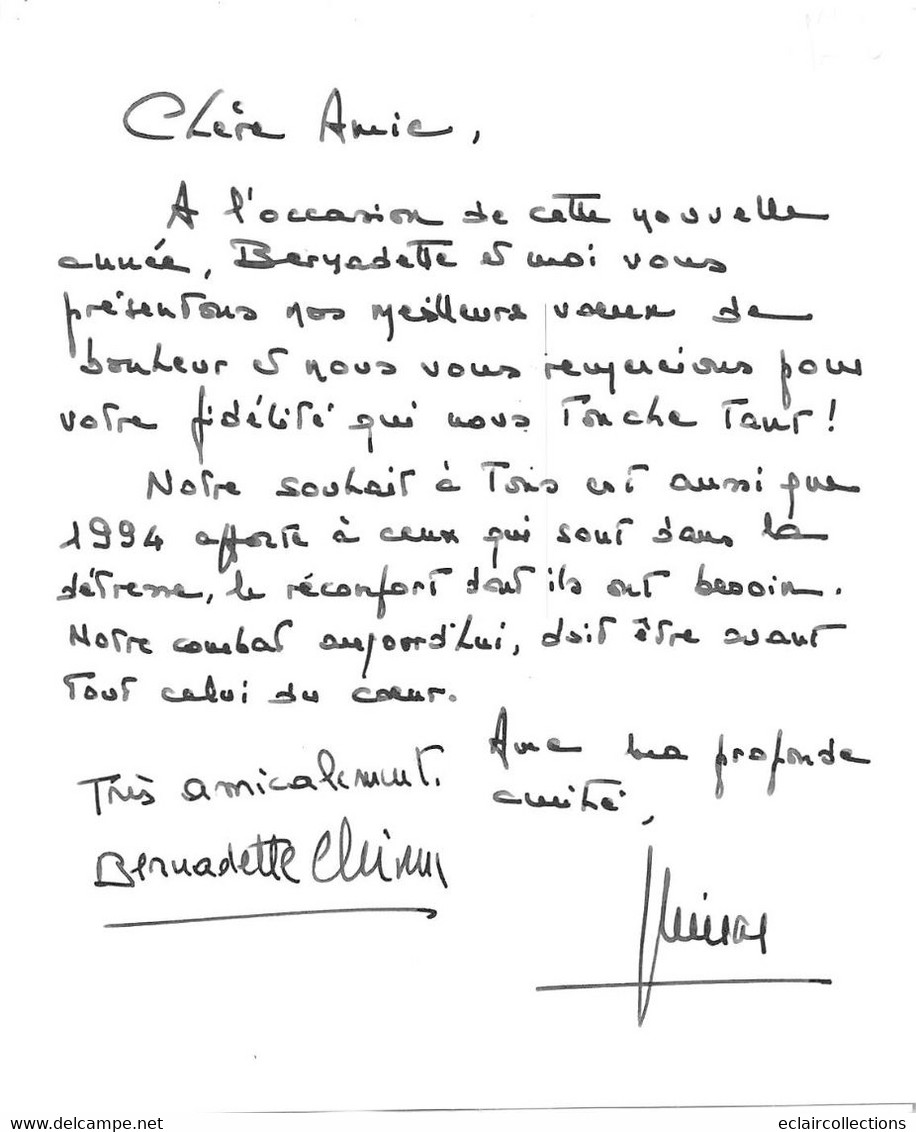 Chère Amie,
A l'occasion de cette nouvelle
année, Bernadette et moi vous
présentons nos meilleurs voeux de
bonheur et nous vous remercions pour
votre fidélité qui nous touche tant !
Notre souhait à tous est aussi que
1994 apporte à ceux qui sont dans la
détresse, le réconfort dont ils ont besoin.
Notre combat aujourd'hui, doit être avant
tout celui du coeur.
Avec ma profonde
amitié,
Très amicalement.
Bernadette Chirac
JChirac
www.delcampe.net
eclaircollections